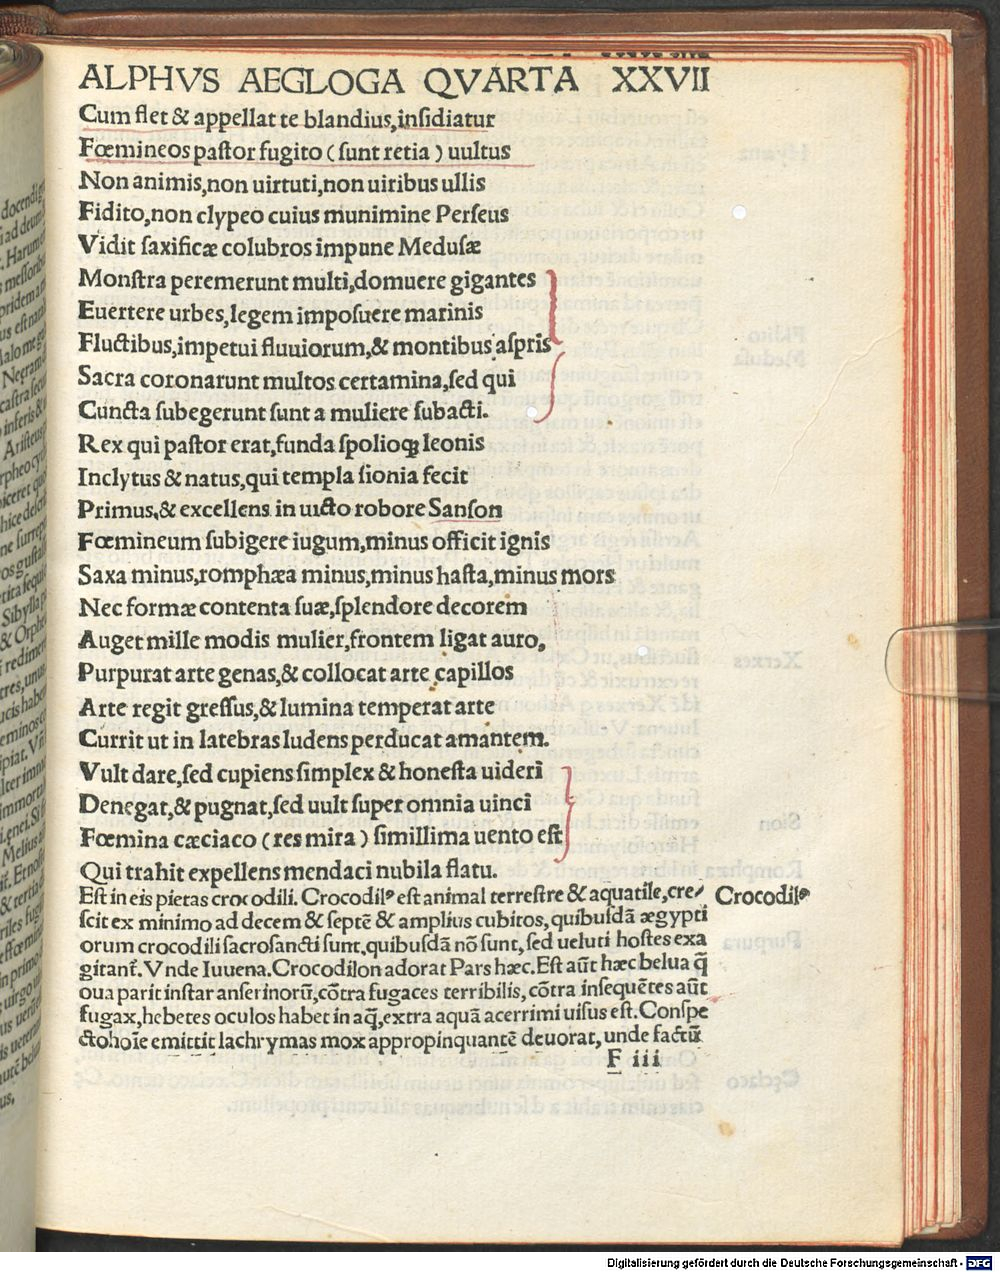 ALPHVS AEGLOGA QVARTA XXVII
Cum flet & appellat te blandius,insidiatur
Fœmineos pastor fugito ( sunt retia ) uultus
Non animis,non uirtuti,non uiribus ullis
Fidito,non clypeo cuius munimine Perseus
Vidit saxificæ colubros impune Medusæ
Monstra peremerunt multi,domuere gigantes
Euertere urbes,legem imposuere marinis
Fluctibus,impetui fluuiorum,& montibus aspris
Sacra coronarunt multos certamina,sed qui
Cuncta subegerunt sunt a muliere subacti.
Rex qui pastor erat,funda spolioqꝫ leonis
Inclytus & natus,qui templa sionia fecit
Primus,& excellens inuicto robore Sanson
Fœmineum subigere iugum,minus officit ignis
Saxa minus,romphæa minus,minus hasta,minus mors
Nec formæ contenta suæ,splendore decorem
Auget mille modis mulier,frontem ligat auro,
Purpurat arte genas,& collocat arte capillos
Arte regit gressus,& lumina temperat arte
Currit ut in latebras ludens perducat amantem.
Vult dare,sed cupiens simplex & honesta uideri
Denegat,& pugnat,sed uult super omnia uinci
Fœmina cæciaco ( res mira ) simillima uento est
Qui trahit expellens mendaci nubila flatu.
Est in eis pietas crocodili. Crocodilꝰ est animal terrestre & aq̃uatile,cre⸗ Crocodilꝰ
scit ex minimo ad decem & septē & amplius cubitos, quibusdā ægypti
orum crocodili sacrosancti sunt,quibusdā nō sunt, sed ueluti hostes exa
gitant̃. Vnde Iuuena.Crocodilon adorat Pars hæc. Est aūt hæc belua q̃
oua parit instar anserinorū,cōtra fugaces terribilis, cōtra insequētes aūt
fugax,hebetes oculos habet in aq̃,extra aquā acerrimi uisus est. Conspe
ctohoīe emittit lachrymas mox appropinquantē deuorat, unde factū
F iii
Digitalisierung gefördert durch die Deutsche Forschungsgemeinschaft - DFG